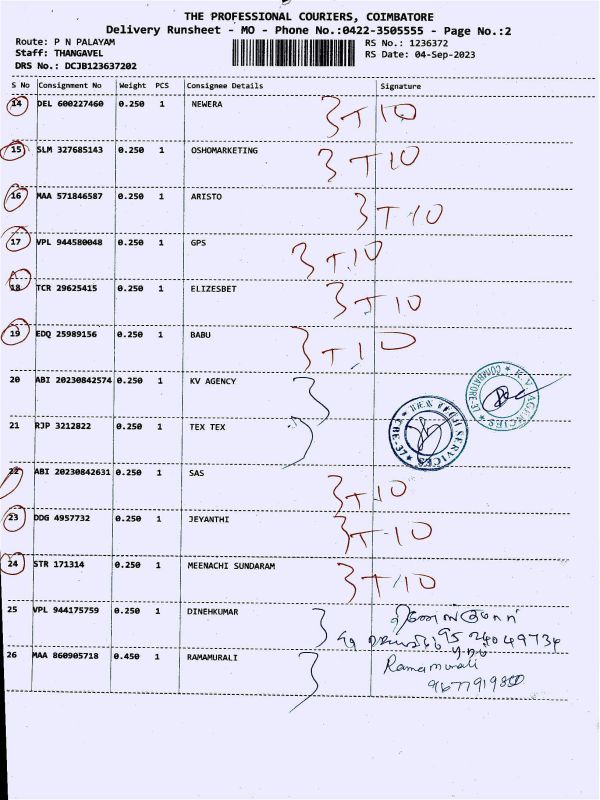 THE PROFESSIONAL COURIERS, COIMBATORE
Delivery Runsheet - MO - Phone No.:0422-3505555 - Page No.:2
Route: P N PALAYAM RS No.: 1236372
Staff: THANGAVEL RS Date: 04-Sep-2023
DRS No.: DCJB123637202
S No Consignment No Weight PCS Consignee Details Signature
14 DEL 600227460 0.250 1 NEWERA 3 T 10
15 SLM 327685143 0.250 1 OSHOMARKETING 3 T 10
16 MAA 571846587 0.250 1 ARISTO 3 T 10
17 VPL 944580048 0.250 1 GPS 3 T 10
18 TCR 29625415 0.250 1 ELIZESBET 3 T 10
19 EDQ 25989156 0.250 1 BABU 3 T 10
20 ABI 20230842574 0.250 1 KV AGENCY
K.V. AGENCIES COIMBATORE-37
21 RJP 3212822 0.250 1 TEX TEX
TEX TECH SERVICES CBE-37
22 ABI 20230842631 0.250 1 SAS 3 T 10
23 DDG 4957732 0.250 1 JEYANTHI 3 T 10
24 STR 171314 0.250 1 MEENACHI SUNDARAM 3 T 10
25 VPL 944175759 0.250 1 DINEHKUMAR
95 24049734
26 MAA 860905718 0.450 1 RAMAMURALI Ramamurali
9677919850